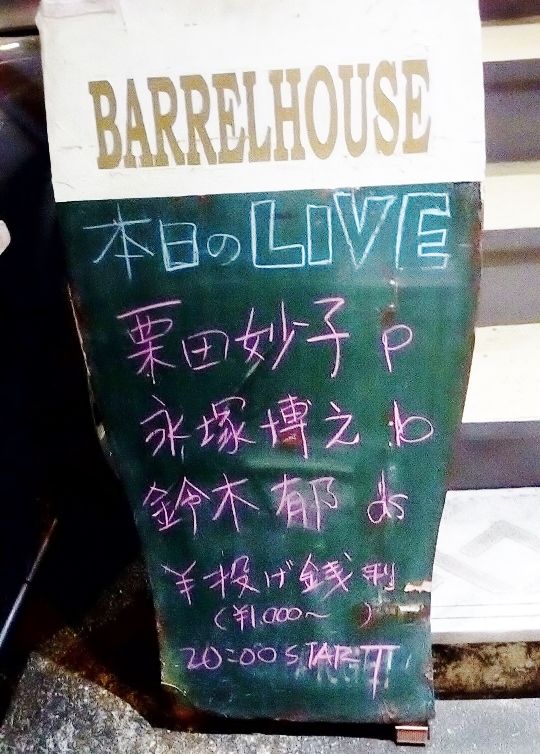 BARRELHOUSE
本日のLIVE
栗田妙子 p
永塚博之 b
鈴木郁 ds
¥投げ銭制
(¥1,000~ )
20:00 START